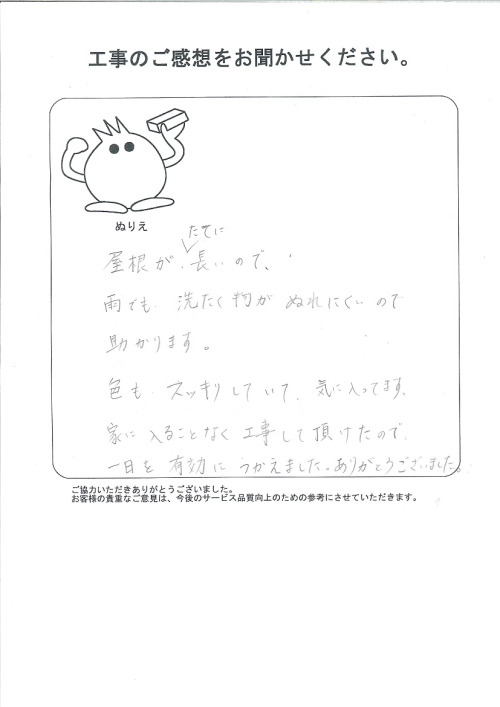 工事のご感想をお聞かせください。
ぬりえ
たてに
屋根が、長いので、
雨でも 洗たく物が ぬれにくいので
助かります。
色も スッキリしていて、気に入ってます。
家に入ることなく工事して頂けたので、
一日を 有効に つかえました。ありがとうございました。
ご協力いただきありがとうございました。
お客様の貴重なご意見は、今後のサービス品質向上のための参考にさせていただきます。